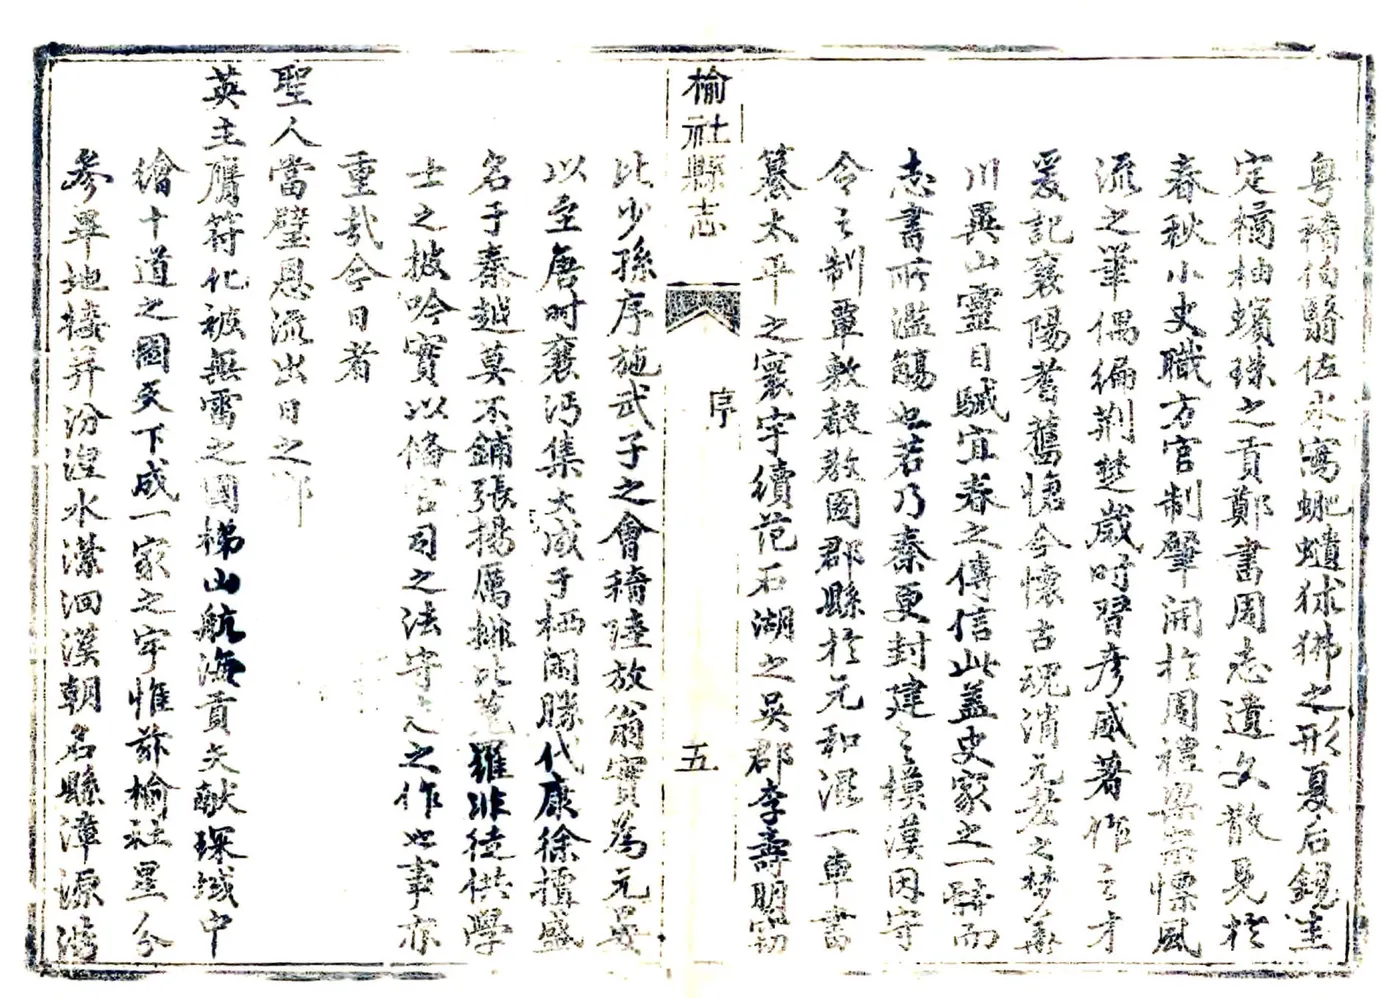 粤稽伯翳佐水寫蜿蟥狖狒之形夏后錫圭
定橘柚蠙珠之貢鄭書周志遺文散見於
春秋小史職方官制肇開於周禮梁宗懍風
流之筆偶編荆楚歲時習彥威著作之才
爰記襄陽耆舊悅今懷古魂消元老之夢華
川異山靈目馘宜春之傳信此蓋史家之一體而
志書所濫觴也若乃秦更封建之模漢因守
令之制覃敷聲教圖郡縣於元和混一車書
纂太平之寰宇續范石湖之吳郡李壽朋竊
榆社縣志
序
五
比少孫序施武子之會稽陸放翁實爲元晏
以至唐時襄沔集大成于栖閒勝代康徐擅盛
名于秦越莫不鋪張揚厲排比蒐羅非徒供學
士之披吟實以備官司之法守之作也事亦
重哉今日者
聖人當璧恩流出日之
英主膺符化被無雷之國梯山航海貢文献琛域中
繪十道之圖天下成一家之宇惟兹榆社星分
參畢地接并汾湼水瀠洄漢朝名縣漳源